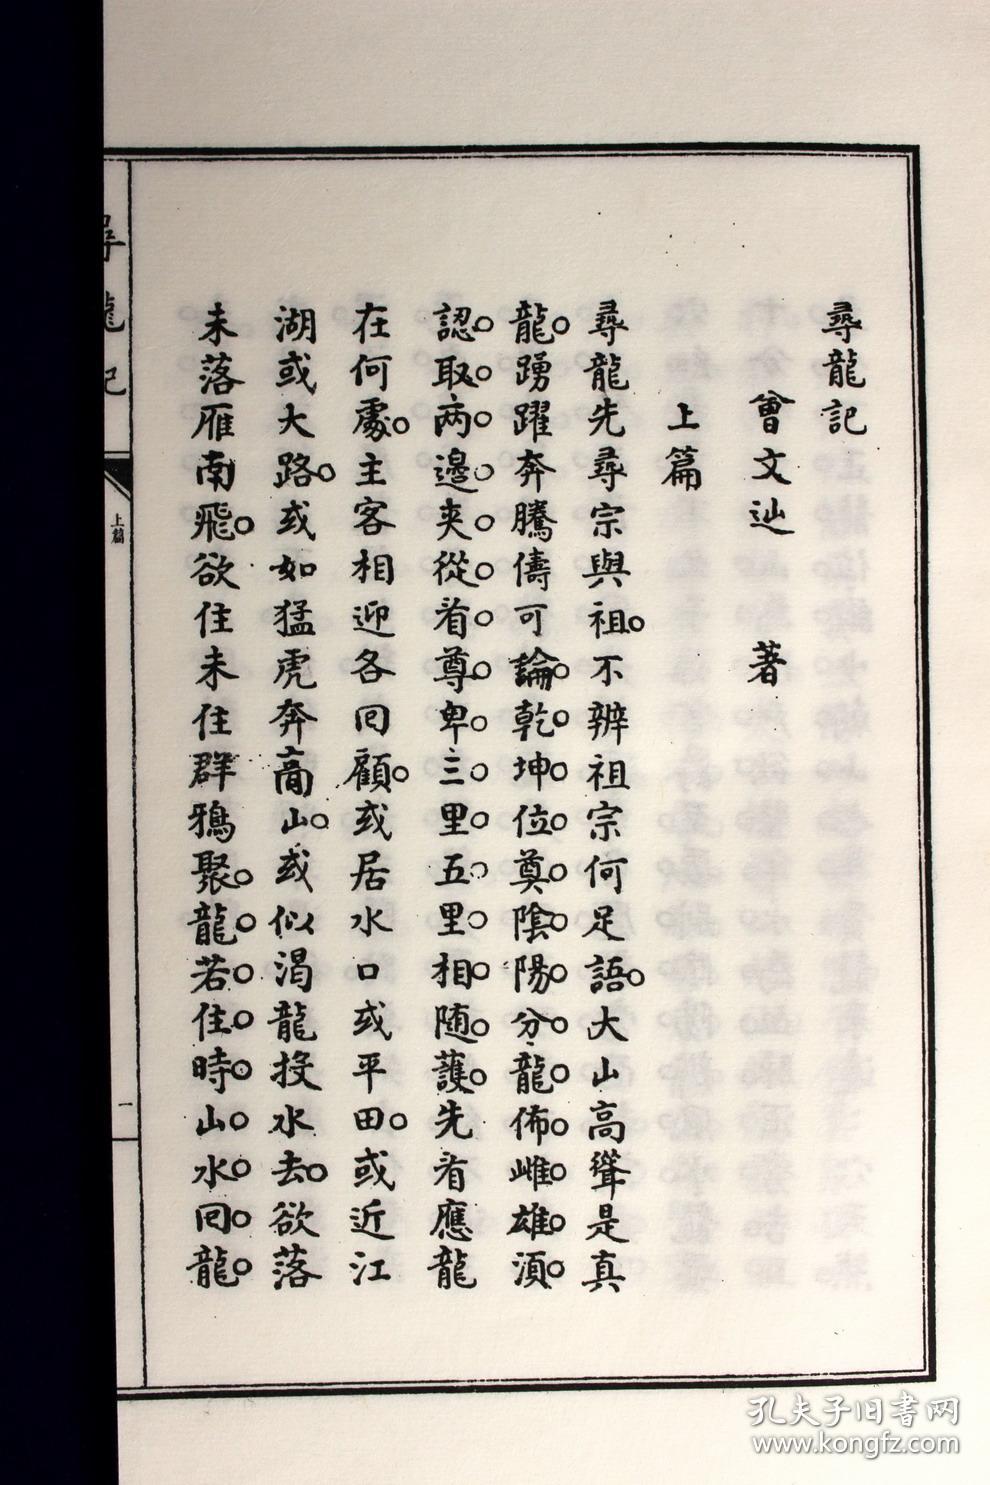 尋龍記
曾文辿 著
上篇
尋龍先尋宗與祖不辨祖宗何足語大山高聳是真
龍踴躍奔騰儔可論乾坤位奠陰陽分龍佈雌雄須
認取两邊夾從看尊卑三里五里相随護先看應龍
在何處主客相迎各回顧或居水口或平田或近江
湖或大路或如猛虎奔高山或似渴龍投水去欲落
未落雁南飛欲住未住群鴉聚龍若住時山水回龍
尋龍記
上篇
一
孔夫子旧書网
www.kongfz.com